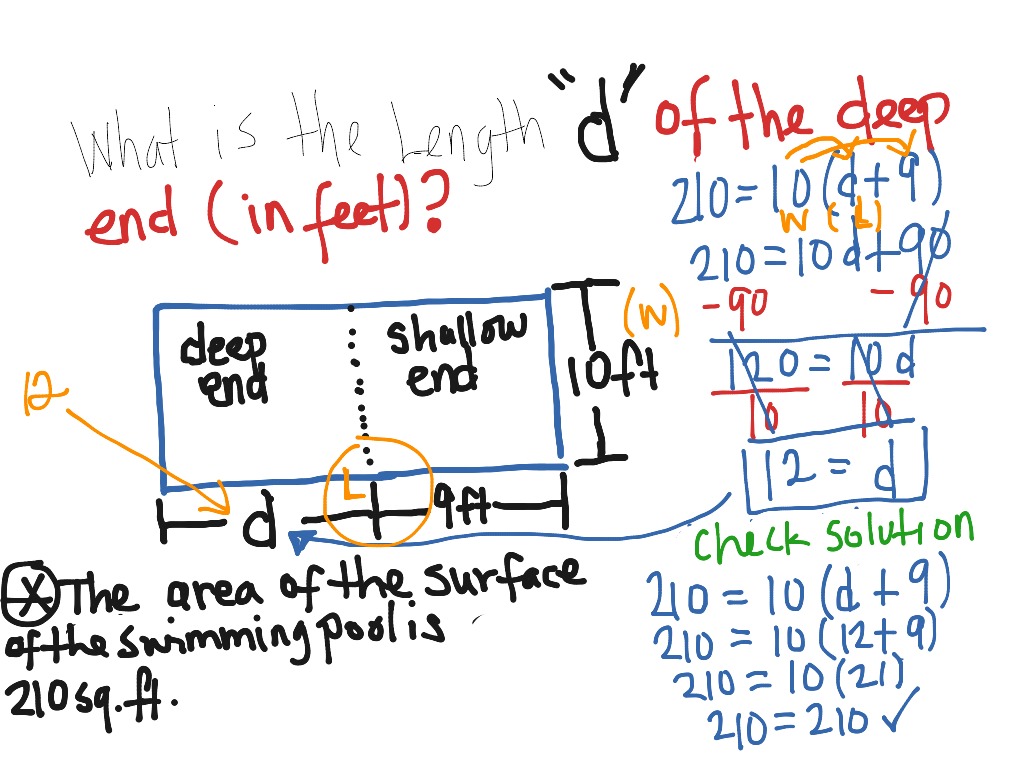 What is the Length "d" of the deep
end (in feet)?
210 = 10(d+9)
W (L)
210 = 10d+90
-90 -90
120 = 10d
10 10
12 = d
deep end
shallow end
(W)
10ft
12
L
d
9ft
check solution
X The area of the surface
of the swimming pool is
210 sq.ft.
210 = 10(d+9)
210 = 10(12+9)
210 = 10(21)
210 = 210 ✓